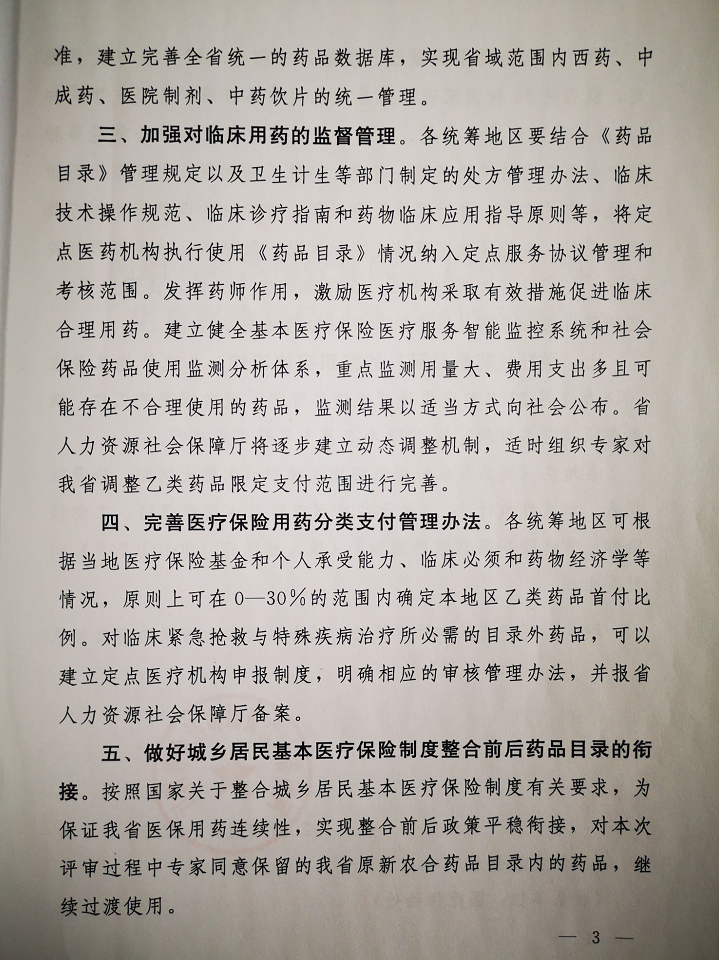 准，建立完善全省统一的药品数据库，实现省域范围内西药、中
成药、医院制剂、中药饮片的统一管理。
三、加强对临床用药的监督管理。各统筹地区要结合《药品
目录》管理规定以及卫生计生等部门制定的处方管理办法、临床
技术操作规范、临床诊疗指南和药物临床应用指导原则等，将定
点医药机构执行使用《药品目录》情况纳入定点服务协议管理和
考核范围。发挥药师作用，激励医疗机构采取有效措施促进临床
合理用药。建立健全基本医疗保险医疗服务智能监控系统和社会
保险药品使用监测分析体系，重点监测用量大、费用支出多且可
能存在不合理使用的药品，监测结果以适当方式向社会公布。省
人力资源社会保障厅将逐步建立动态调整机制，适时组织专家对
我省调整乙类药品限定支付范围进行完善。
四、完善医疗保险用药分类支付管理办法。各统筹地区可根
据当地医疗保险基金和个人承受能力、临床必须和药物经济学等
情况，原则上可在0—30%的范围内确定本地区乙类药品首付比
例。对临床紧急抢救与特殊疾病治疗所必需的目录外药品，可以
建立定点医疗机构申报制度，明确相应的审核管理办法，并报省
人力资源社会保障厅备案。
五、做好城乡居民基本医疗保险制度整合前后药品目录的衔
接。按照国家关于整合城乡居民基本医疗保险制度有关要求，为
保证我省医保用药连续性，实现整合前后政策平稳衔接，对本次
评审过程中专家同意保留的我省原新农合药品目录内的药品，继
续过渡使用。
— 3 —